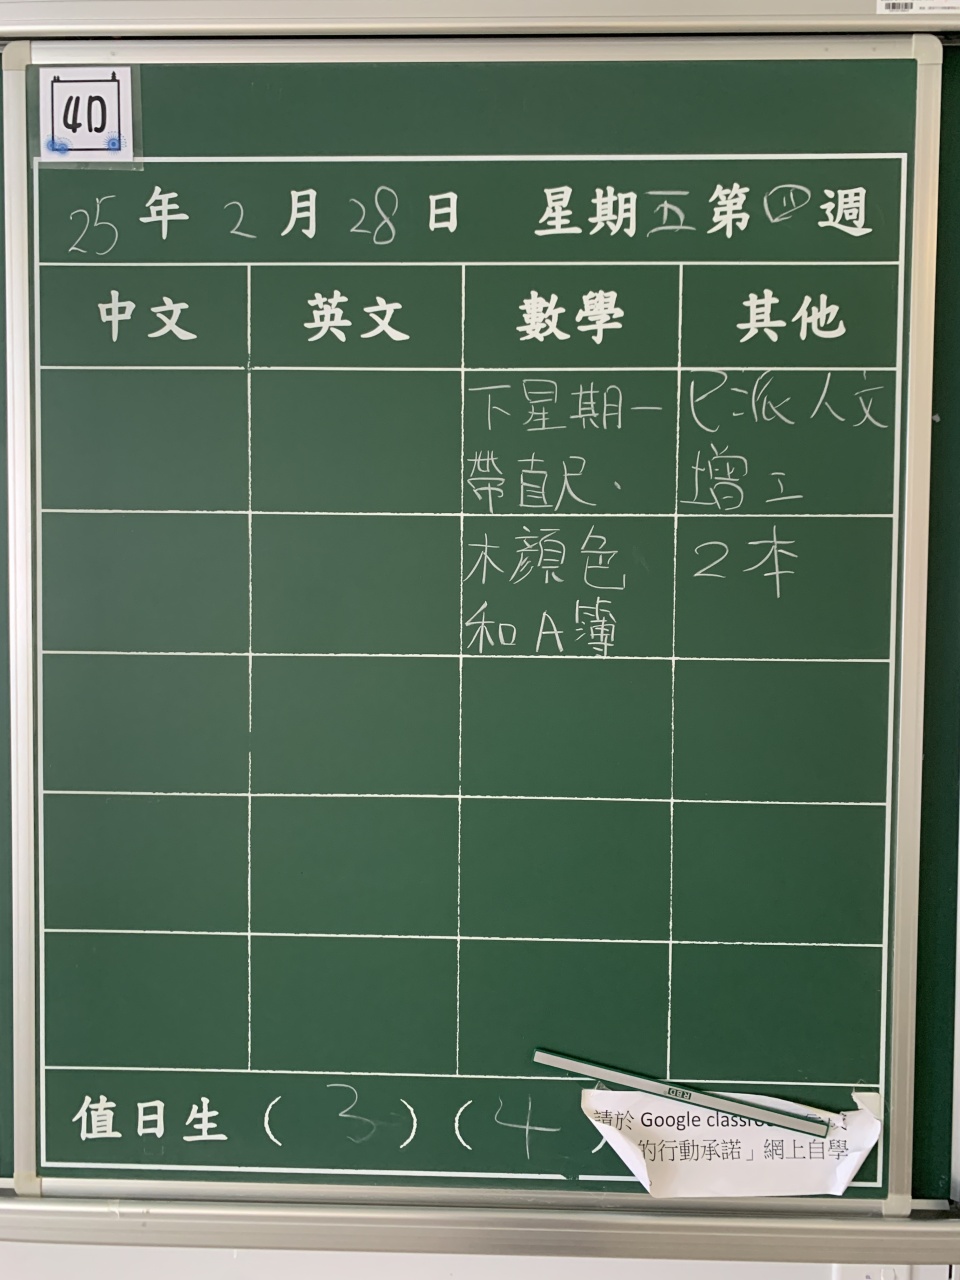 4D
25年2月28日 星期五第四週
中文 英文 數學 其他
下星期一
帶直尺、
木顏色
和A簿
已派人文
增工
2本
值日生(3)(4
請於 Google classro
的行動承諾」網上自學